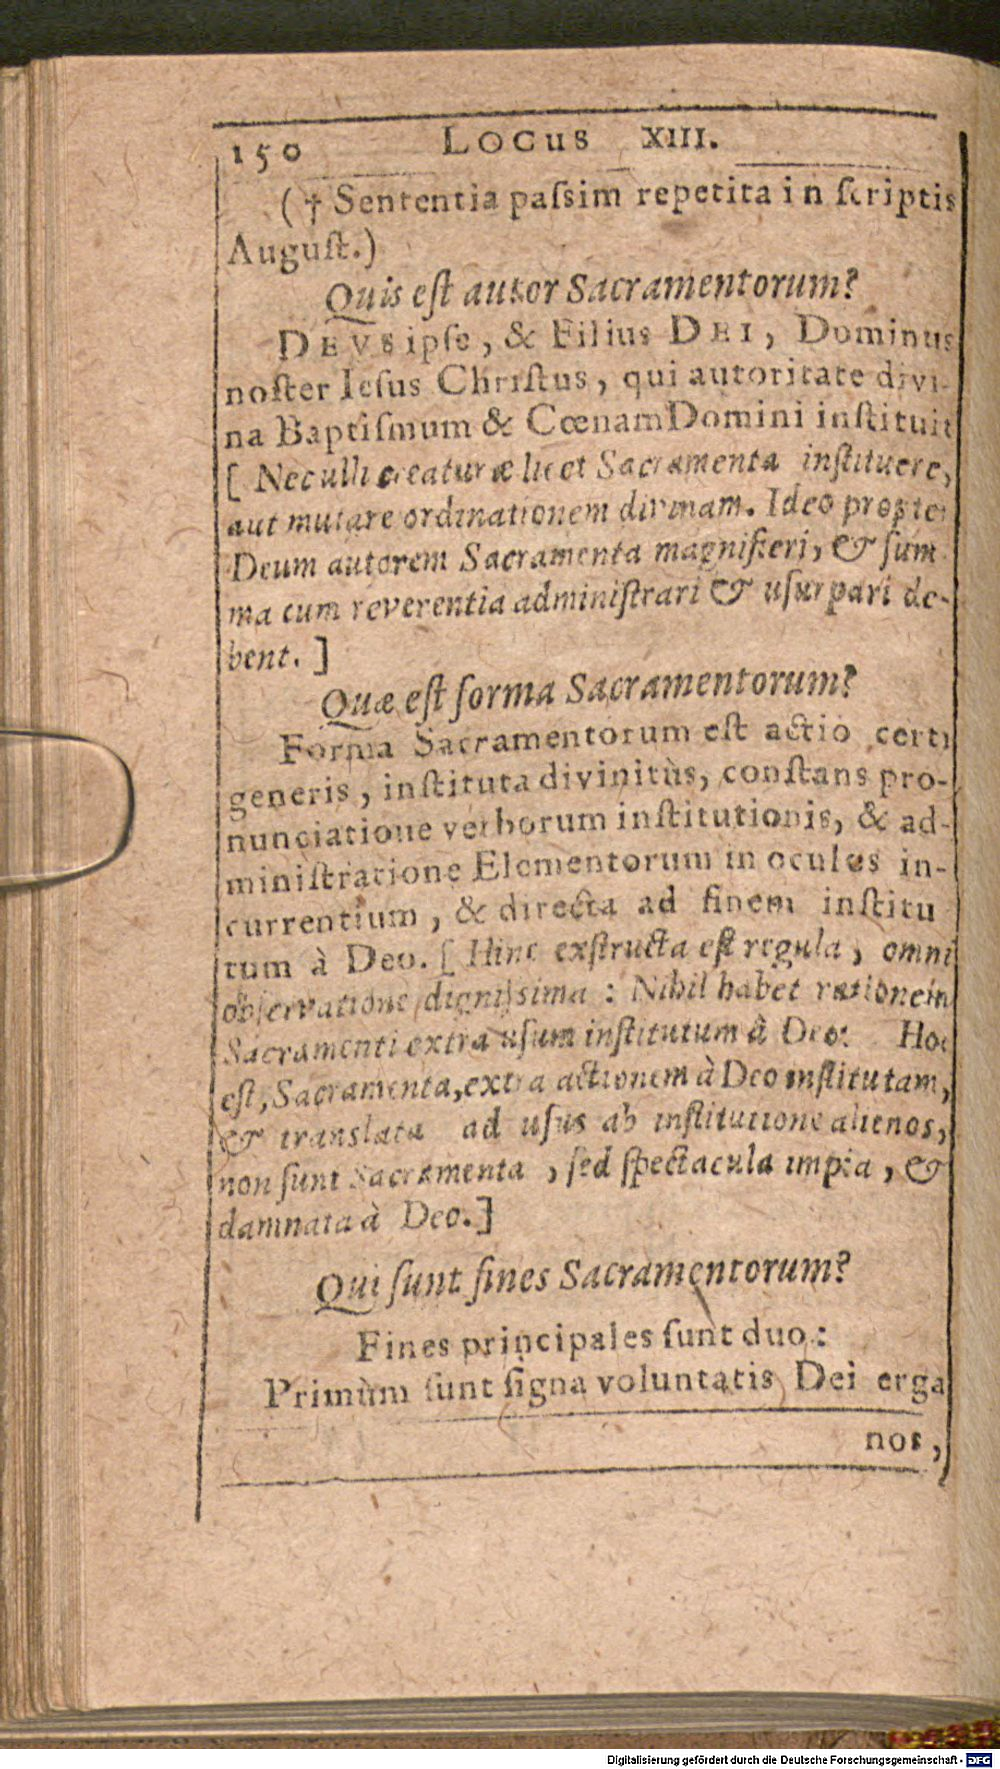 150 LOCUS XIII.
(† Sententia paſsim repetita in ſcriptis
Auguſt.)
Quis eſt autor Sacramentorum?
DEVS ipſe, & Filius DEI, Dominus
noſter Ieſus Chriſtus, qui autoritate divi-
na Baptiſmum & Cœnam Domini inſtituit
[ Nec ulli creaturæ licet Sacramenta inſtituere,
aut mutare ordinationem divinam. Ideo propter
Deum autorem Sacramenta magnifieri, & ſum
ma cum reverentia adminiſtrari & uſurpari de-
bent. ]
Quæ eſt forma Sacramentorum?
Forma Sacramentorum eſt actio certi
generis, inſtituta divinitùs, conſtans pro-
nunciatione verborum inſtitutionis, & ad-
miniſtratione Elementorum in oculos in-
currentium, & directa ad finem inſtitu
tum à Deo. [ Hinc exſtructa eſt regula, omni
obſervatione digniſsima: Nihil habet rationem
Sacramenti extra uſum inſtitutum â Deo: Hoc
eſt, Sacramenta, extra actionem à Deo inſtitutam,
& translata ad uſus ab inſtitutione alienos,
non ſunt Sacramenta, ſed ſpectacula impia, &
damnata à Deo.]
Qui ſunt fines Sacramentorum?
Fines principales ſunt duo:
Primùm ſunt ſigna voluntatis Dei erga
nos,
Digitalisierung gefördert durch die Deutsche Forschungsgemeinschaft - DFG